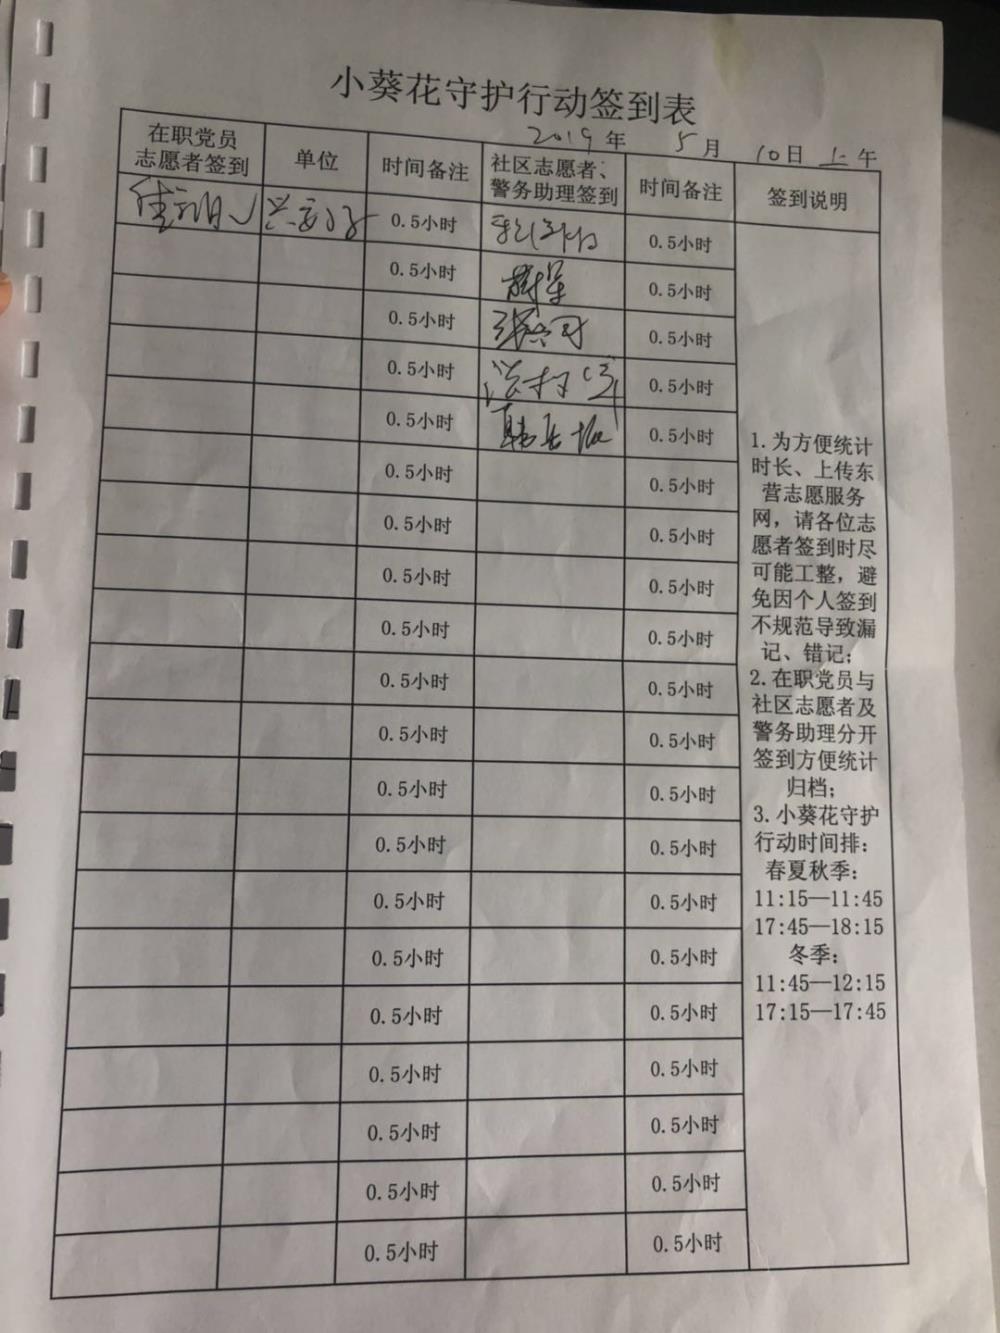 小葵花守护行动签到表
2019年 5月 10日 上午
在职党员志愿者签到 单位 时间备注 社区志愿者、警务助理签到 时间备注 签到说明
0.5小时 0.5小时
0.5小时 0.5小时
0.5小时 0.5小时
0.5小时 0.5小时
0.5小时 0.5小时
0.5小时 0.5小时
0.5小时 0.5小时
0.5小时 0.5小时
0.5小时 0.5小时
0.5小时 0.5小时
0.5小时 0.5小时
0.5小时 0.5小时
0.5小时 0.5小时
0.5小时 0.5小时
0.5小时 0.5小时
0.5小时 0.5小时
0.5小时 0.5小时
0.5小时 0.5小时
0.5小时 0.5小时
0.5小时 0.5小时
0.5小时 0.5小时
1.为方便统计
时长、上传东
营志愿服务
网，请各位志
愿者签到时尽
可能工整，避
免因个人签到
不规范导致漏
记、错记；
2.在职党员与
社区志愿者及
警务助理分开
签到方便统计
归档；
3.小葵花守护
行动时间排：
春夏秋季：
11:15—11:45
17:45—18:15
冬季：
11:45—12:15
17:15—17:45